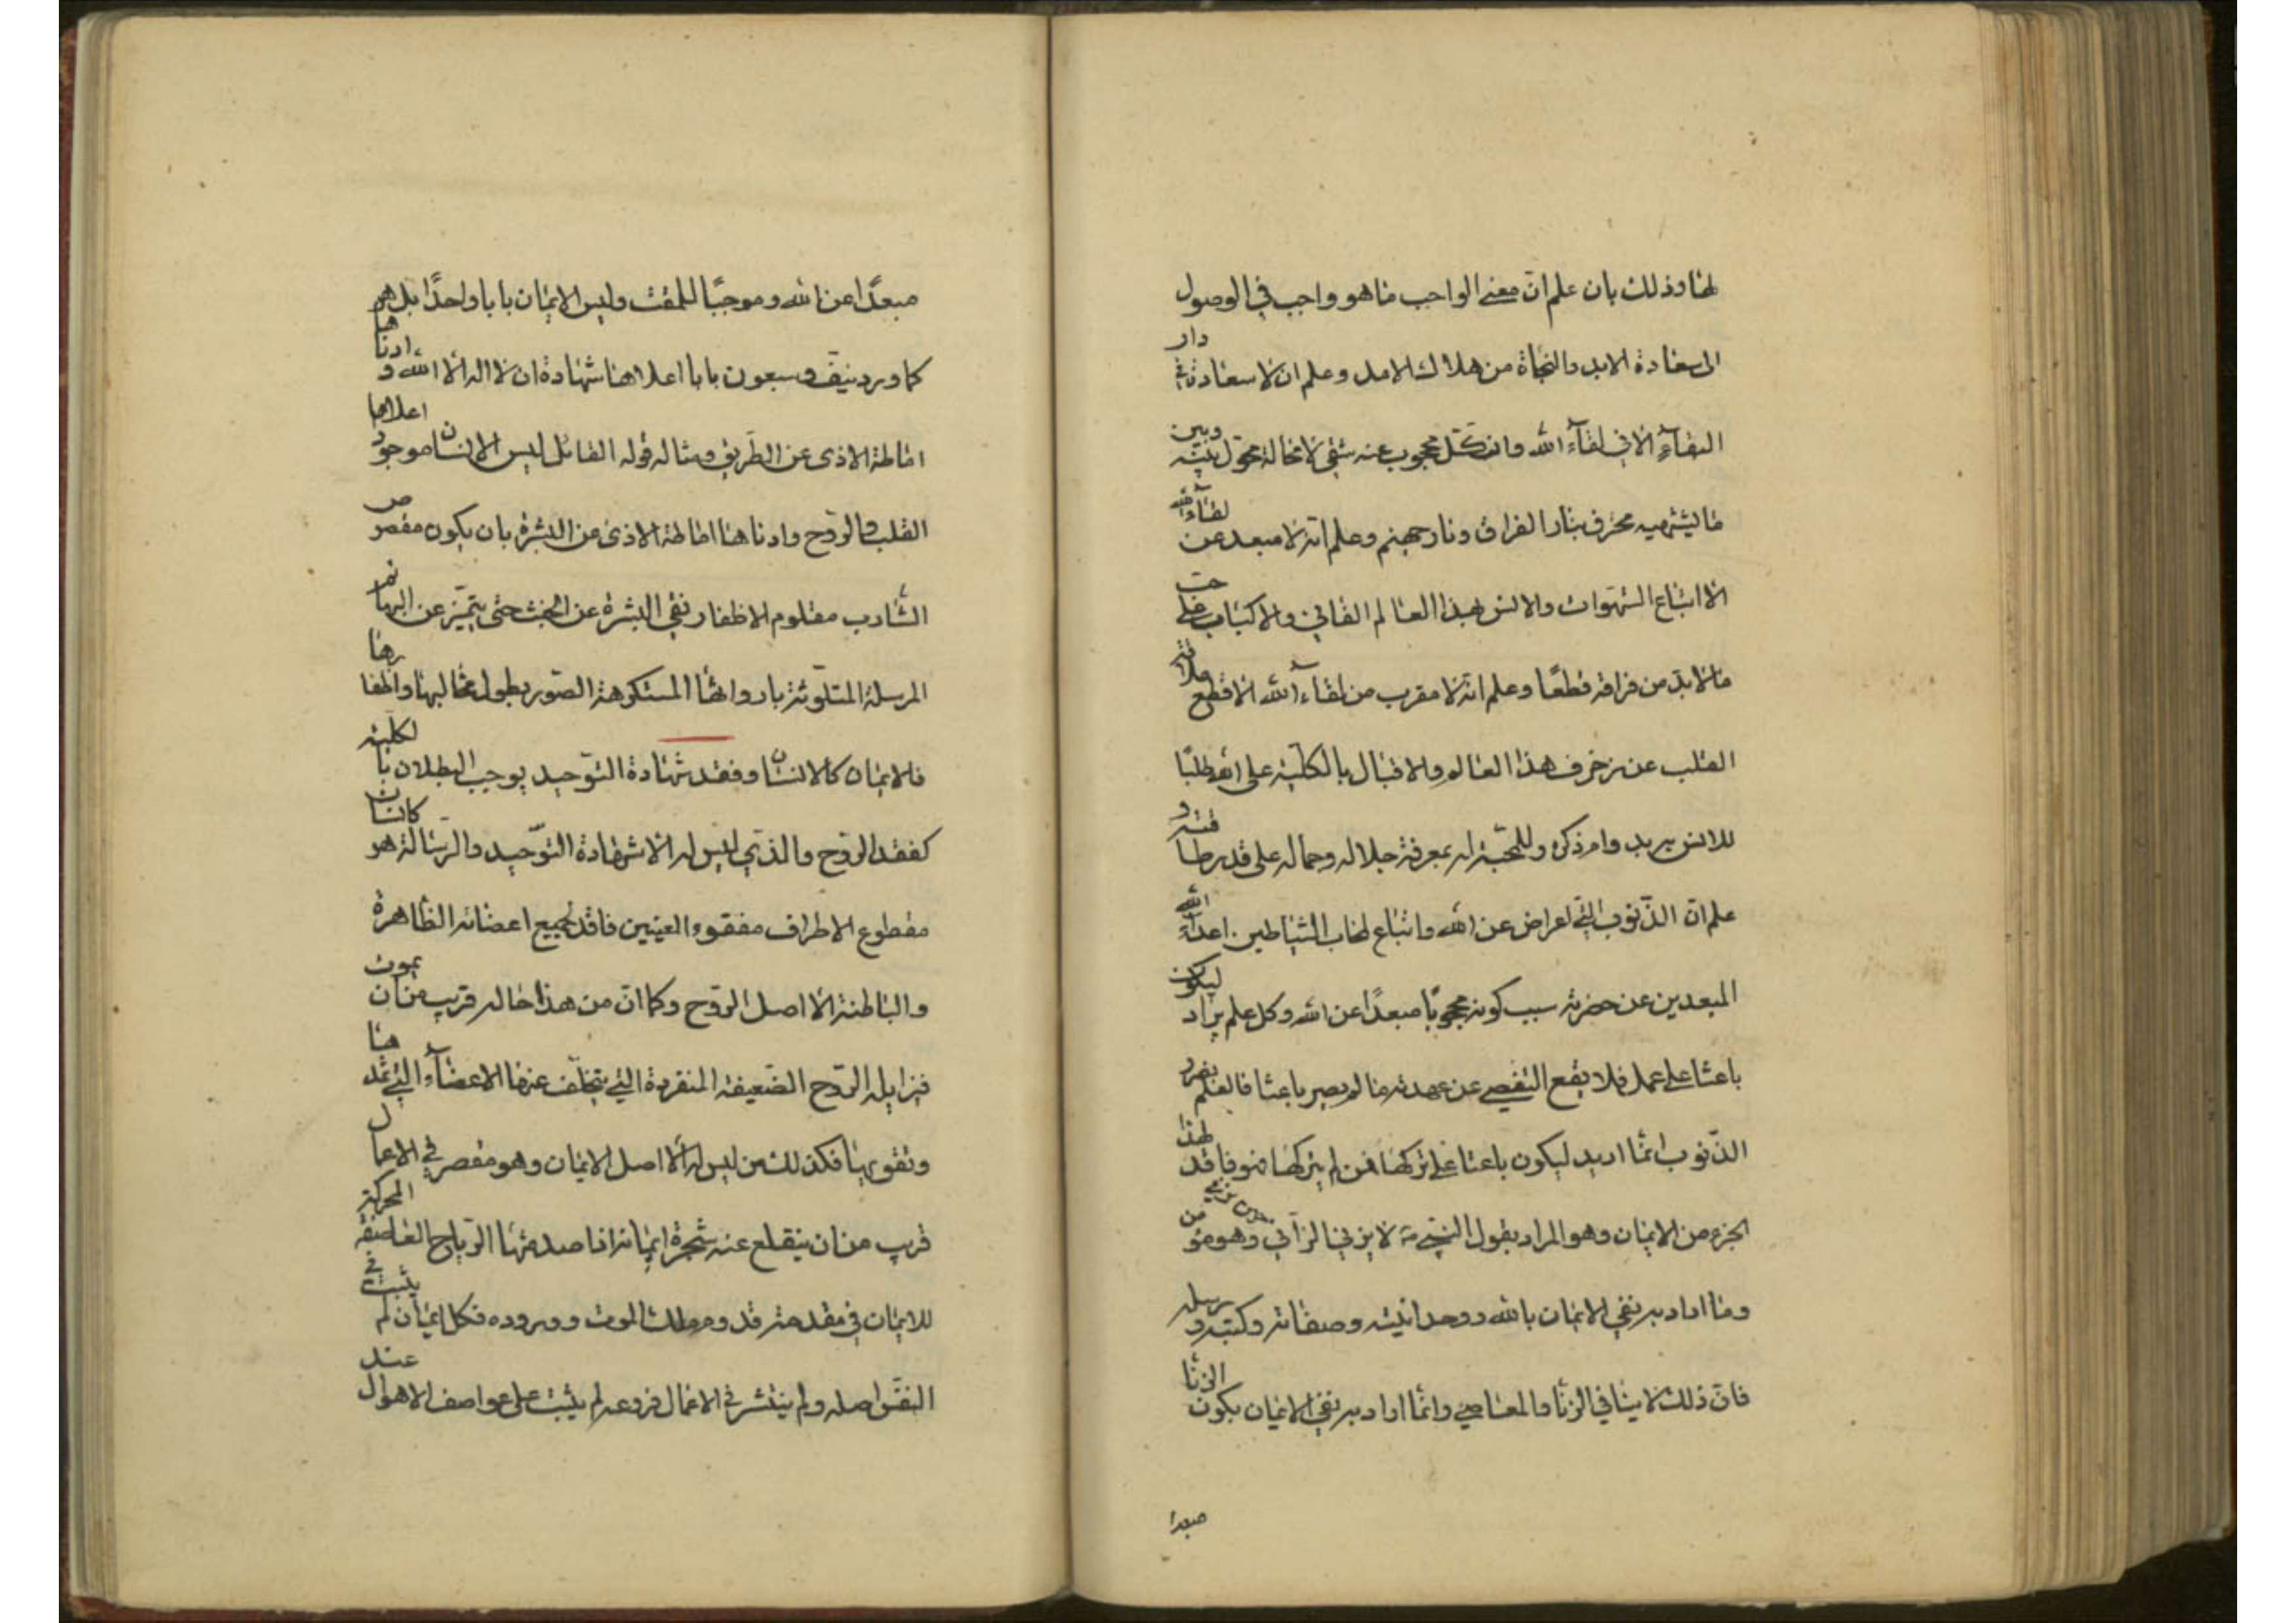 لها وذلك بان علم ان معنى الواجب ما هو واجب في الوصول
الى سعادة الابد والنجاة من هلاك الامد وعلم ان لا سعادة في دار
البقاء الا في لقاء الله وان كل محجوب عنه شقى لا محالة محول بينه وبين
ما يشتهيه محترق بنار الفراق ونار جهنم وعلم انه لا مبعد عن لقاء الله
الا اتباع الشهوات والانس بهذا العالم الفاني والاكباب على حب
ما لا بد من فراقه قطعًا وعلم انه لا مقرب من لقاء الله الا قطع علاقة
القلب عن زخرف هذا العالم والاقبال بالكلية على الله طلبًا
للانس به بدوام ذكره وللمحبة له بمعرفة جلاله وجماله على قدر طاقته و
علم ان الذنوب التي اعراض عن الله واتباع لمحاب الشياطين اعداء الله
المبعدين عن حضرته سبب كونه محجوبًا مبعدًا عن الله وكل علم يراد ليكون
باعثا على عمل فلا يقع التفصي عن عهدته ما لم يصر باعثا فالعلم بضرر
الذنوب انما اريد ليكون باعثا على تركها فمن لم يتركها فهو فاقد لهذا
الجزء من الايمان وهو المراد بقول النبي ص لا يزني الزاني وهو مؤمن
وما اراد به نفي الايمان بالله ووحدانيته وصفاته وكتبه ورسله
فان ذلك لا ينافي الزنا والمعاصي وانما اراد به نفي الايمان بكون الزنا
مبعدا
مبعدًا عن الله وموجبًا للمقت وليس الايمان بابا واحدًا بل هو
كما ورد نيف وسبعون بابا اعلاها شهادة ان لا اله الا الله و ادناها
اماطة الاذى عن الطريق ومثاله قوله القائل ليس الانسان موجود اعلاها
القلب والروح وادناها اماطة الاذى عن البشرة بان يكون مقصوص
الشارب مقلوم الاظفار نقي البشرة عن الخبث حتى يتميز عن البهائم
المرسلة المتلوثة بارواثها المستكرهة الصور بطول مخالبها واظفارها
فالايمان كالانسان وفقد شهادة التوحيد يوجب البطلان بالكلية
كفقد الروح والذي ليس له الا شهادة التوحيد والرسالة هو كانسان
مقطوع الاطراف مفقوء العينين فاقد لجميع اعضائه الظاهرة
والباطنة الا اصل الروح وكما ان من هذا حاله قريب من ان يموت
فيزايله الروح الضعيفة المنفردة التي يتخلف عنها الاعضاء التي تمدها
وتقويها فكذلك من ليس له الا اصل الايمان وهو مقصر في الاعمال
قريب من ان ينقلع عنه شجرة ايمانه اذا صدمتها الرياح العاصفة المحركة
للايمان في مقدمة قدوم ملك الموت ووروده فكل ايمان لم يثبت في
النفس اصله ولم ينتشر في الاعمال فروعه لم يثبت على عواصف الاهوال عند